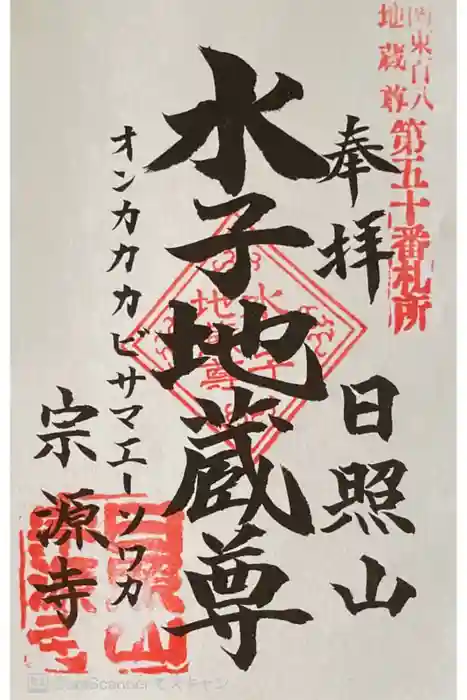 関東百八
地蔵尊
第五十番札所
奉拝
日照山
水子地蔵尊
水子
地蔵尊
オンカカカビサマエーソワカ
宗源寺
日照山
宗源寺
CamScanner でスキャン